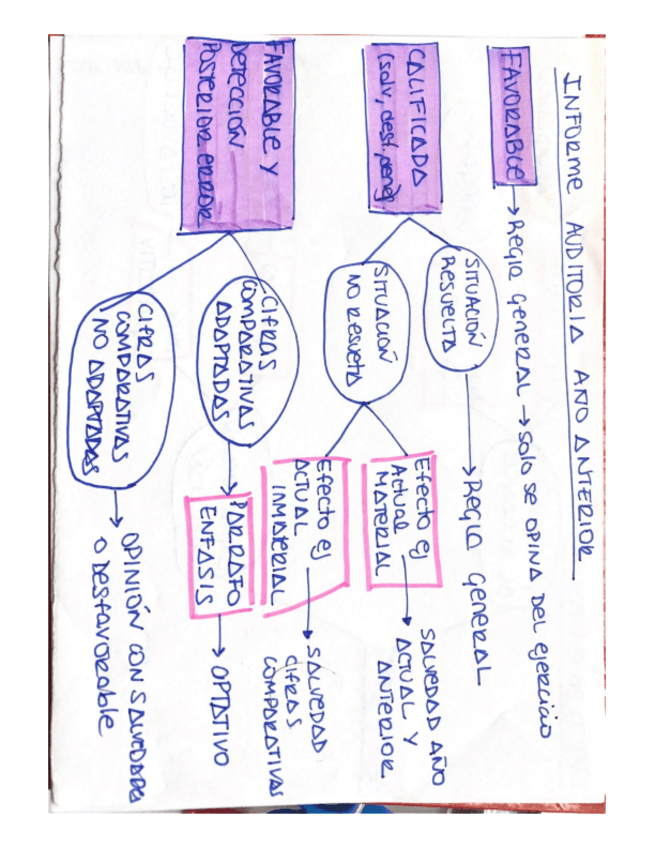 INFORME AUDITORIA AÑO ANTERIOR
FAVORABLE → Regla general → Solo se opina del ejercicio
CALIFICADA
(salv, desf, deneg)
SITUACIÓN
RESUELTA
→ Regla general
SITUACIÓN
NO Resuelta
Efecto ej
Actual
MATERIAL
→ SALVEDAD AÑO
ACTUAL Y
ANTERIOR
Efecto ej
ACTUAL
INMATERIAL
→ SALVEDAD
cifras
COMPARATIVAS
FAVORABLE Y
DETECCIÓN
POSTERIOR ERROR
CIFRAS
COMPARATIVAS
ADAPTADAS
→ PÁRRAFO
ENFASIS
→ OPTATIVO
CIFRAS
COMPARATIVAS
NO ADAPTADAS
→ OPINIÓN CON SALVEDADES
O DESFAVORABLE